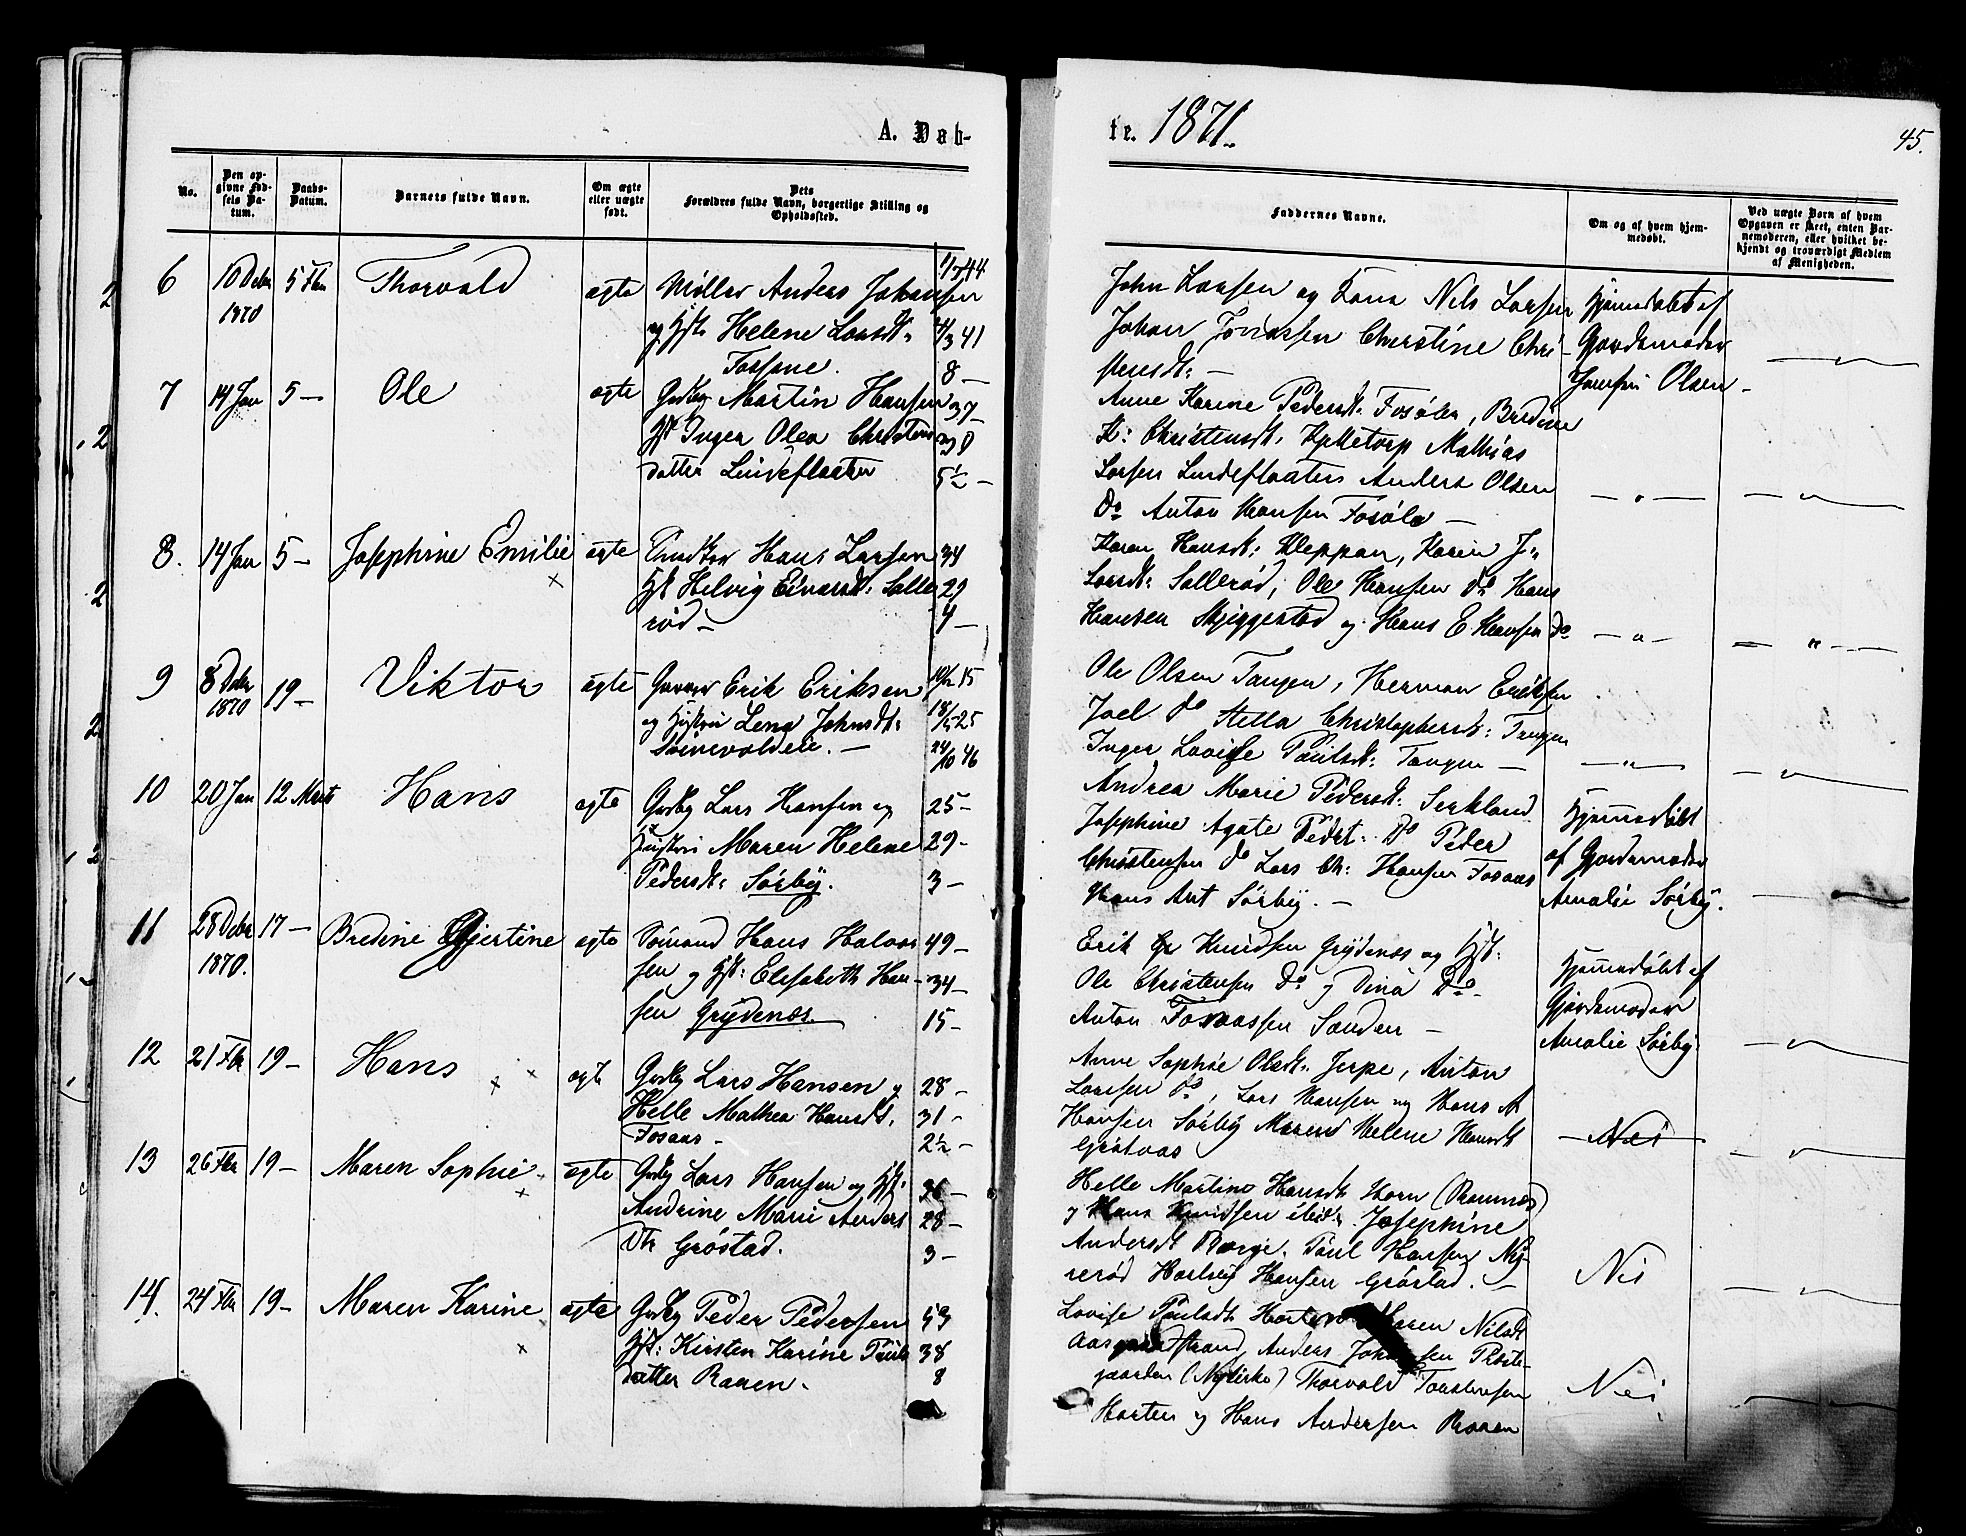 A. Døb-
te. 1871.
45.
No.
Den op-
givne Fød-
sels Da-
tum.
Daabs-
Datum.
Barnets fulde Navn.
Om ægte
eller uægte
født.
Dets
Forældres fulde Navn, borgerlige Stilling og
Opholdssted.
Faddernes Navne.
Om og af hvem hjem-
medøbt.
Ved uægte Børn af hvem
Opgaven er skeet, enten Bar-
nemoderen, eller hvilket be-
kjendt og troværdigt Medlem
af Menigheden.
6 10 Debr 1870 5 Fbr Thorvald ægte Møller Anders Johansen 44
og Hst Helene Larsdt: 41
Fossane. 8 -
John Larsen og Kona Nils Larsen
Johan Jonassen Christine Chri-
stensdt: -
Hjemmedøbt af
Gjordemoder
Josefin Olsen -
7 14 Jan 5 - Ole ægte Gmbg Martin Hansen 37
Hst Inger Olea Christens 38
datter Lindefladten 5½ -
Anne Karine Pedersdt: Fosølen, Bredine
K: Christensdt: Mathias
Larsen Lindefloaten Anders Olsen
Do Anton Hansen Fosøle -
8. 14 Jan 5 - Josephine Emilie ægte Hans Larsen 34
Hst Helvig Eivarsdt: Solle 29
rød - 4 -
Karen Hansdt: Kleppan, Karen J:
Larsdt: Sollerød, Ole Hansen Do Hans
Hansen Skjeggestad og Hans E. Hansen Do
9 8 Debr 1870 19 - Viktor ægte Erik Eriksen 15
og Hustru Lena Johnsdt: 18/5 25
24/10 46
Ole Olsen Tangen, Herman Eriksen
Joel Do Helle Christophersdt: Tangen
Inger Lovise Paulsdt: Tangen -
10 20 Jan 12 Marts Hans ægte Gmbg Lars Hansen og 25 -
Hustru Maren Helene 29 -
Pedersdt: Sørby. 3 -
Andrea Marie Pedersdt: Serkland
Josephine Agate Pedrdt: Do Peder
Christensen Do Lars Chr: Hansen Fosaas
Hans Ant Sørby. -
Hjemmedøbt
af Gjordemoder
Amalie Sørby.
11 28 Debr 1870. 17 - Bredine Gjertine ægte Sømand Hans Halvor 49 -
sen og Hst: Elisabeth Han- 34 -
sen Grydenæs. 15 -
Erik Gr Knudsen Grydenæs og Hst:
Ole Christensen Do og Dina Do -
Anton Tovaassen Sanden -
Hjemmedøbt af
Gjordemoder
Amalie Sørby.
12 21 Fbr 19 - Hans ægte Gmbg Lars Hansen og 28 -
Helle Mathea Hansdt. 31 -
Fosaas - 2½ -
Anne Sophie Olsdt: Jerpe, Anton
Larsen Do, Lars Hansen og Hans A
Hansen Sørby Maren Helene Hansdt
Grøtaas
- Nei -
13 26 Fbr 19 - Maren Sophie ægte Gmbg Lars Hansen og Hst: 36 -
Andrine Marie Anders 28 -
Dtr Grøstad. 3 -
Helle Martine Hansdt Horn (Ramnæs)
og Hans Knudsen ibid: Josephine
Andersdt Berge. Paul Hansen Ny-
rerød Hansen Grøstad. -
Nei
14. 24 Fbr 19 - Maren Karine ægte Gmbg Peder Pedersen 53
Hst: Kirsten Karine Pauls 38
datter Raaen. 8
Lovise Paulsdt Horten Maren Nilsdt
Aasgaardstrand, Anders Johansen Præste-
gaarden (Nykirke) Thorvald
Horten og Hans Andersen Raaen
Nei